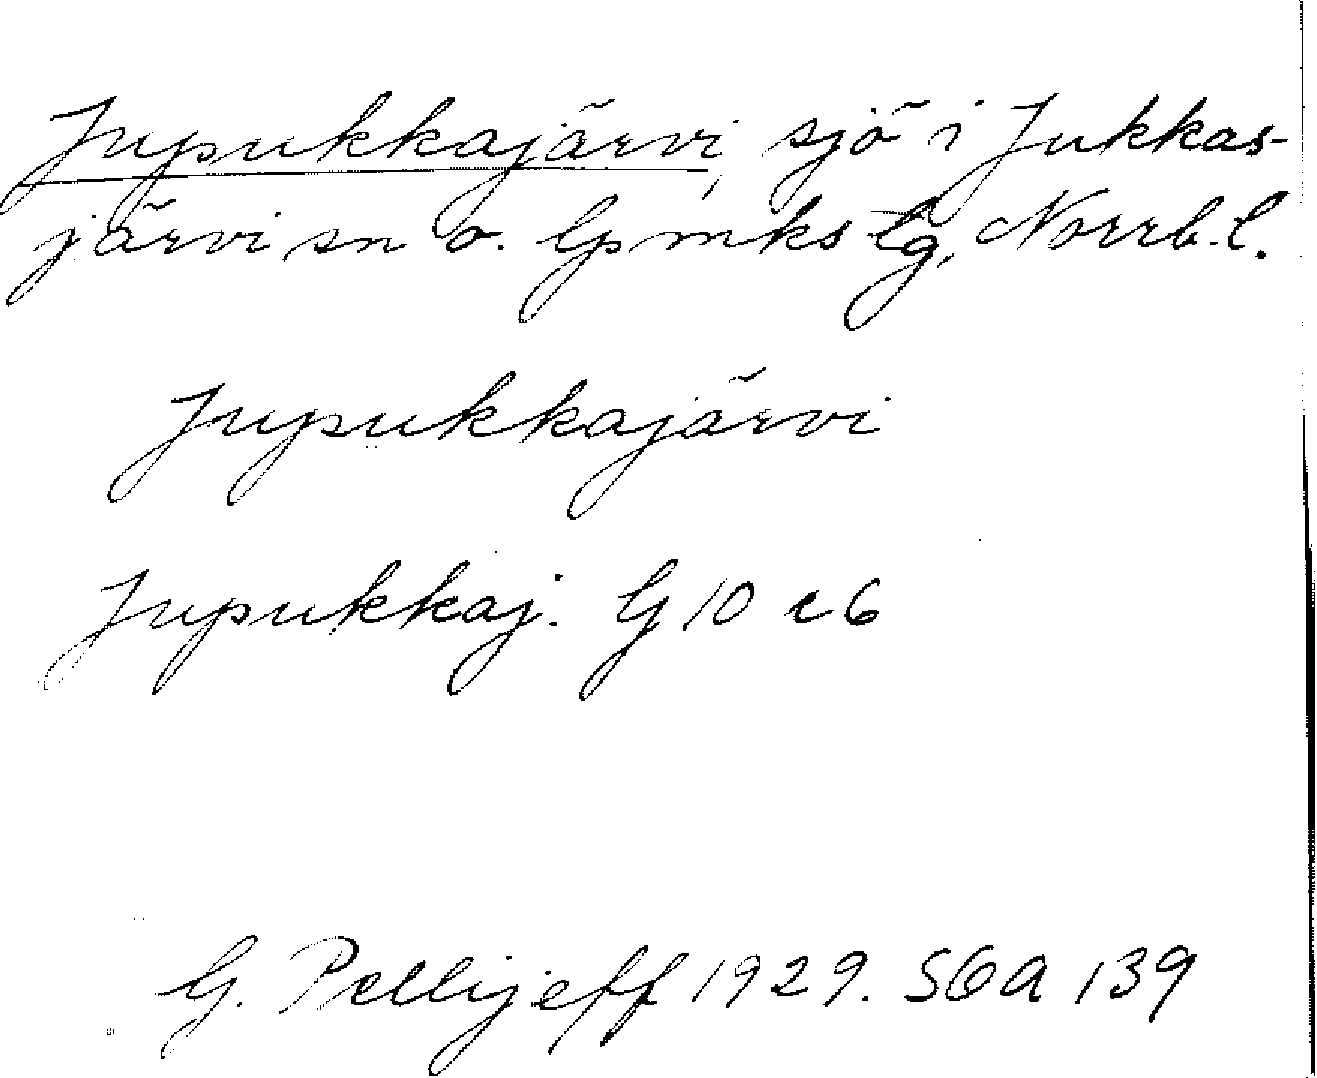 Jupukkajärvi, sjö i Jukkas-
järvi sn o. Lpmks tg, Norrb. l.
Jupukkajärvi
Jupukkaj. G 10 c 6
G. Pellijeff 1929. SGA 139